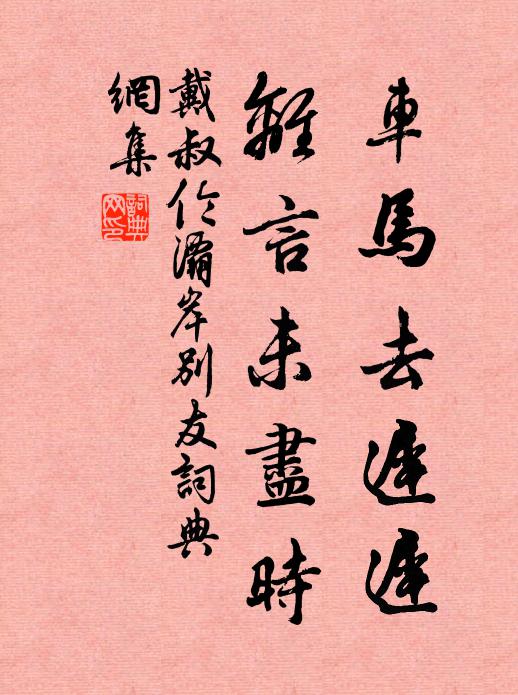 車馬去遲遲
離言未盡時
戴叔伦灞岸別友詞典
網集
詞典网印